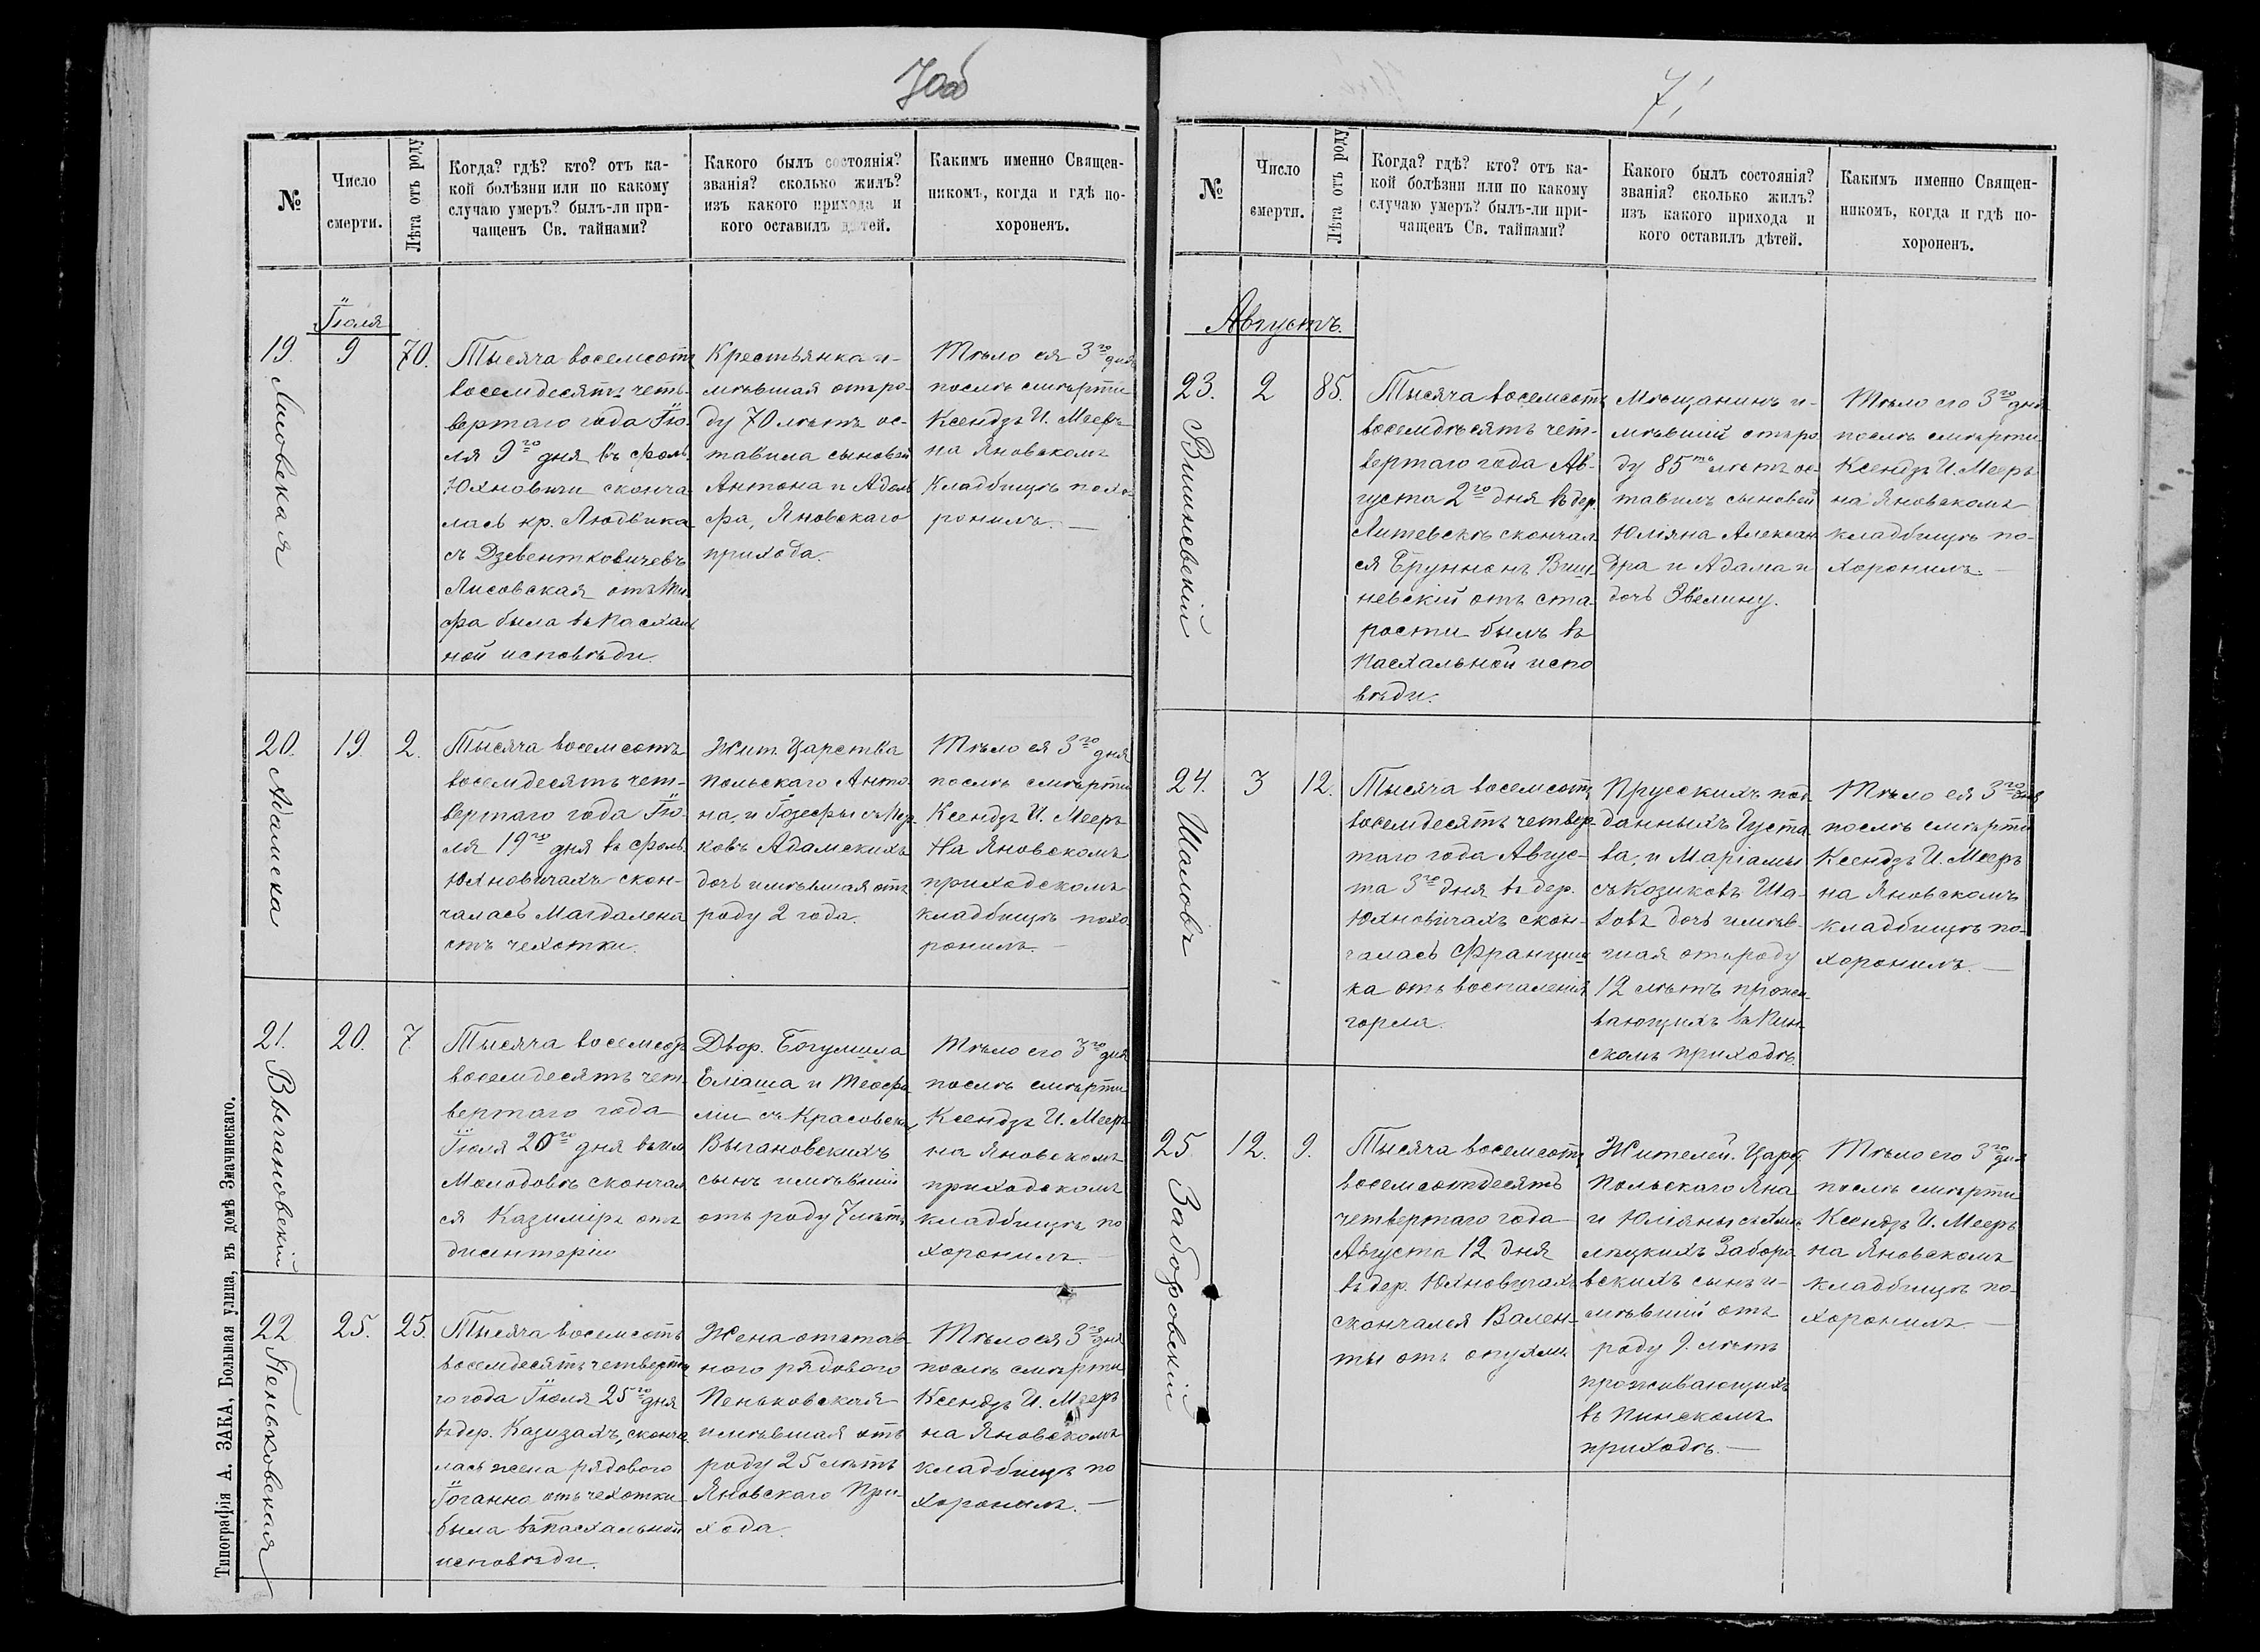 70об
№
Число
смерти.
Лѣта отъ роду
Когда? гдѣ? кто? отъ ка-
кой болѣзни или по какому
случаю умеръ? былъ-ли при-
чащенъ Св. тайнами?
Какого былъ состоянія?
званія? сколько жилъ?
изъ какого прихода и
кого оставилъ дѣтей.
Какимъ именно Священ-
никомъ, когда и гдѣ по-
хороненъ.
Іюля
19.
Лисовская
9
70.
Тысяча восемсотъ
восемдесятъ чет-
вертаго года Ію-
ля 9го дня въ фоль.
Юхновичи сконча
лась кр. Людвика
съ Дзевентковичевъ
Лисовская отъ ти
фа была въ пасхаль
ной исповѣди.
Крестьянка и-
мѣвшая отъ ро-
ду 70 лѣтъ ос-
тавила сыновей
Антона и Адоль
фа, Яновскаго
прихода.
Тѣло ея 3го дня
послѣ смѣрти
Ксендзъ И. Мееръ
на Яновскомъ
кладбищѣ похо-
ронилъ. —
20.
Адамска
19.
2.
Тысяча восемсотъ
восемдесятъ чет-
вертаго года Ію-
ля 19го дня въ фоль.
Юхновичахъ скон-
чалась Магдалена
отъ чехотки.
Жит. Царства
Польскаго Анто-
на, и Іозефы съ
ковъ Адамскихъ
дочь имѣвшая отъ
роду 2 года.
Тѣло ея 3го дня
послѣ смѣрти
Ксендзъ И. Мееръ
На Яновскомъ
приходскомъ
кладбищѣ похо-
ронилъ. —
21.
Выгановскій
20.
7.
Тысяча восемсотъ
восемдесятъ чет-
вертаго года
Іюля 20го дня въ им
Молодовѣ скончал
ся Казиміръ отъ
дисентеріи
Двор. Богумила
Еліаша и Теофи
ліи съ Красовски
Выгановскихъ
сынъ имѣвшій
отъ роду 7 лѣтъ
Тѣло его 3го дня
послѣ смѣрти
Ксендзъ И. Мееръ
на Яновскомъ
приходскомъ
кладбищѣ по
хоронилъ. —
22
Пеньковская
25.
25.
Тысяча восемсотъ
восемдесятъ четверта
го года Іюля 25го дня
въ дер. сконча
лась жена рядового
Іоганна отъ чехотки
была въ пасхальной
исповѣди.
Жена отстав-
ного рядового
Пеньковская
имѣвшая отъ
роду 25 лѣтъ
Яновскаго При-
хода.
Тѣло ея 3го дня
послѣ смѣрти
Ксендзъ И. Мееръ
на Яновскомъ
кладбищѣ по
хоронилъ. —
Типографія А. ЗАКА, Большая улица, въ домѣ Змачинскаго.
71
№
Число
смерти.
Лѣта отъ роду
Когда? гдѣ? кто? отъ ка-
кой болѣзни или по какому
случаю умеръ? былъ-ли при-
чащенъ Св. тайнами?
Какого былъ состоянія?
званія? сколько жилъ?
изъ какого прихода и
кого оставилъ дѣтей.
Какимъ именно Священ-
никомъ, когда и гдѣ по-
хороненъ.
Августъ.
23.
Вишневскій
2
85.
Тысяча восемсотъ
восемдѣсятъ чет-
вертаго года Ав-
густа 2го дня въ дер.
Литевскѣ скончал
ся Брунонъ Виш-
невскій отъ ста-
рости былъ въ
пасхальной испо
вѣди.
Мѣщанинъ и-
мѣвшій отъ ро
ду 85тъ лѣтъ ос-
тавилъ сыновей
Юліяна Алексан
дра и Адама и
дочь Эвелину.
Тѣло его 3го дня
послѣ смѣрти
Ксендзъ И. Мееръ
на Яновскомъ
кладбищѣ по-
хоронилъ. —
24.
Шаловъ
3
12.
Тысяча восемсотъ
восемдесятъ четвер-
таго года Авгус-
та 3го дня въ дер.
Юхновичахъ скон-
чалась Францишка
ка отъ воспаленія
горла.
Прусскихъ под-
данныхъ Густа
ва, и Маріанны
съ Козиковъ Ша-
ловъ дочь имѣв-
шая отъ роду
12 лѣтъ прожи-
вающихъ въ Пин-
скомъ приходѣ.
Тѣло ея 3го дня
послѣ смѣрти
Ксендзъ И. Мееръ
на Яновскомъ
кладбищѣ по-
хоронилъ. —
25
Заборовскій
12.
9.
Тысяча восемсотъ
восемсотдесятъ
четвертаго года
Августа 12 дня
въ дер. Юхновичахъ
скончался Вален-
ты отъ опухли.
Жителей Царс.
Польскаго Яна
и Юліяны съ
лецкихъ Заборо
вскихъ сынъ и-
мѣвшій отъ
роду 9. лѣтъ
проживающихъ
въ Пинскомъ
приходѣ. —
Тѣло его 3го дня
послѣ смѣрти
Ксендзъ И. Мееръ
на Яновскомъ
кладбищѣ по-
хоронилъ —